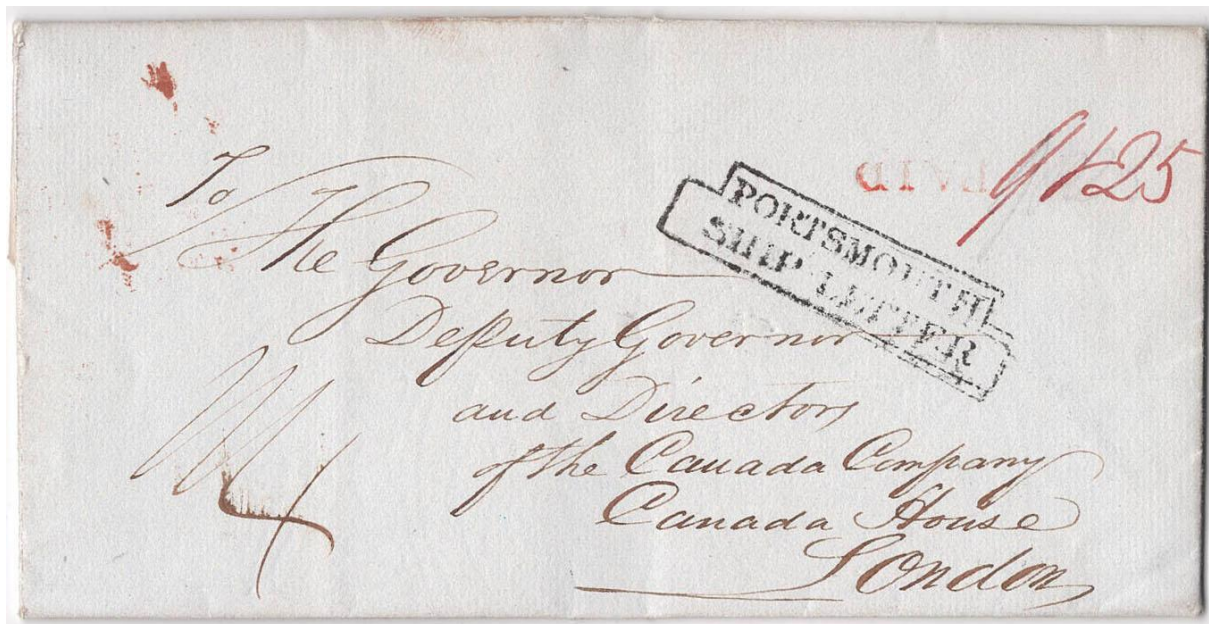 To
The Governor
Deputy Governor
and Directors
of the Canada Company
Canada House
London
PORTSMOUTH
SHIP LETTER
PAID
25